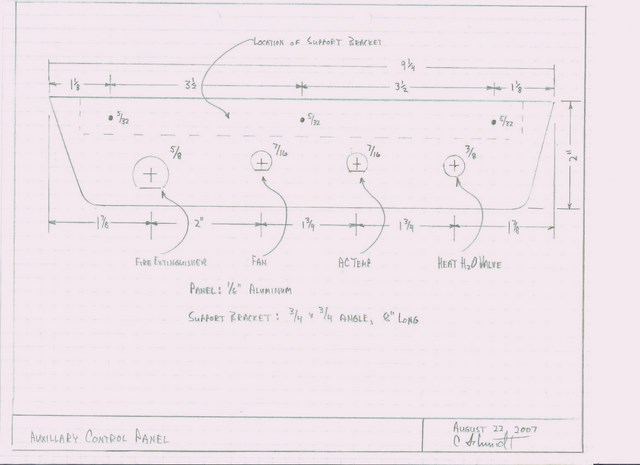 LOCATION OF SUPPORT BRACKET
9 1/4
1 1/8 3 1/2 3 1/2 1 1/8
5/32 5/32 5/32
2"
5/8 7/16 7/16 3/8
1 7/8 2" 1 3/4 1 3/4 1 7/8
FIRE EXTINGUISHER FAN AC TEMP HEAT H2O VALVE
PANEL: ALUMINUM
SUPPORT BRACKET: 3/4 x 3/4 ANGLE, 8" LONG
AUXILLARY CONTROL PANEL
AUGUST 22, 2007
C Schmidt